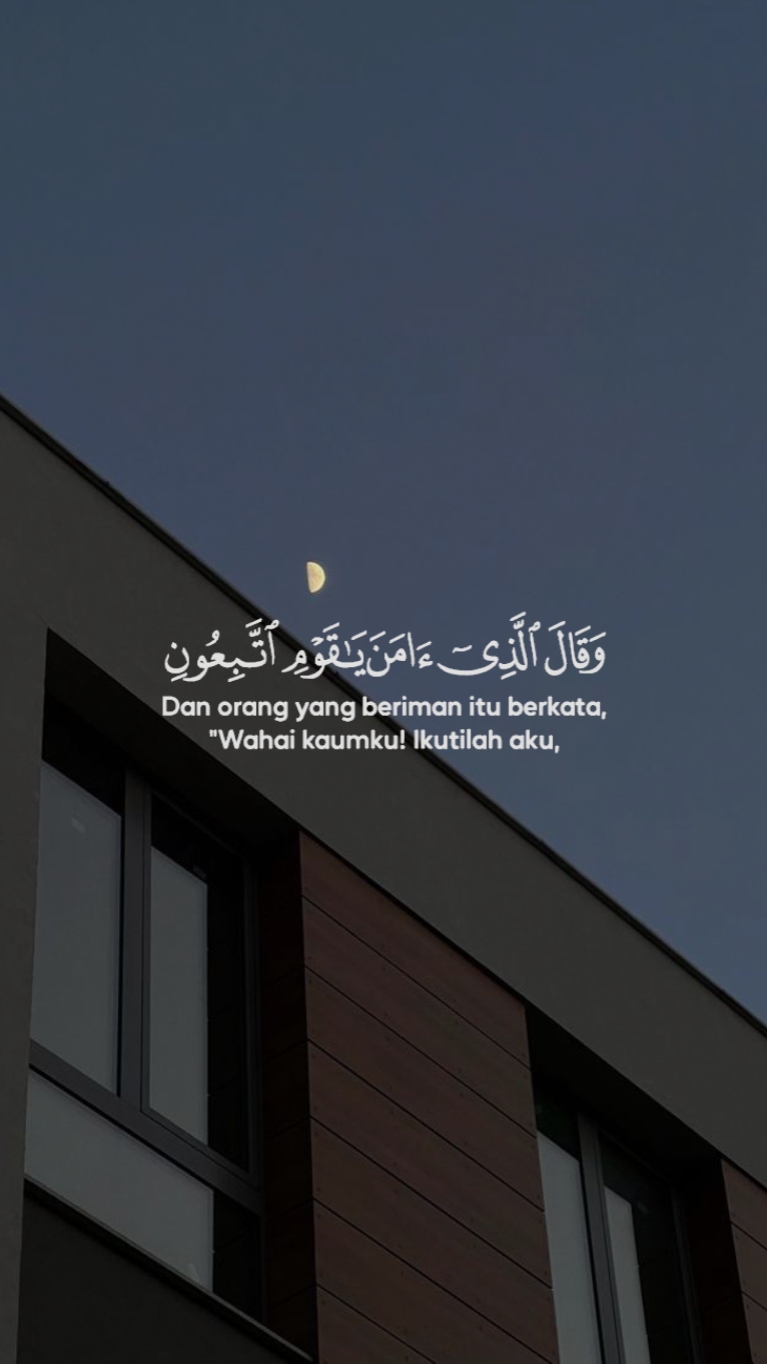 وَقَالَ ٱلَّذِىٓ ءَامَنَ يَـٰقَوْمِ ٱتَّبِعُونِ
Dan orang yang beriman itu berkata,
"Wahai kaumku! Ikutilah aku,